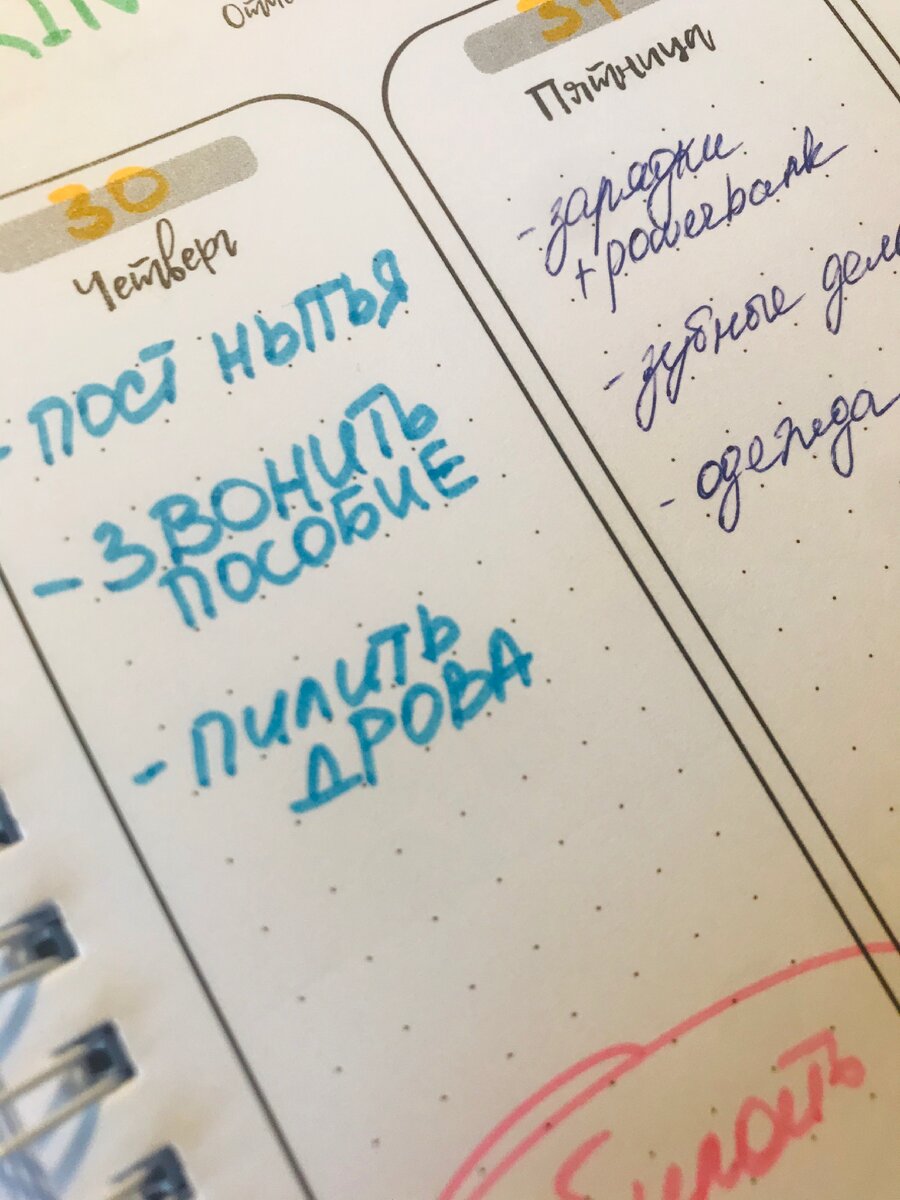 30
Четверг
- ПОСТ НЫТЬЯ
- ЗВОНИТЬ
ПОСОБИЕ
- ПИЛИТЬ
ДРОВА
31
Пятница
- зарядки
+ powerbank
- зубные дела
- одежда